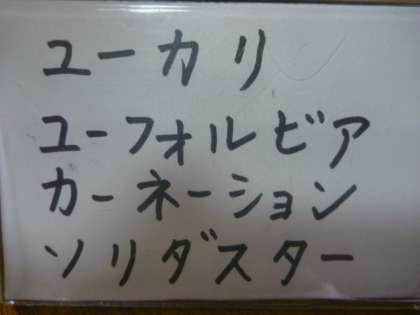 ユーカリ
ユーフォルビア
カーネーション
ソリダスター